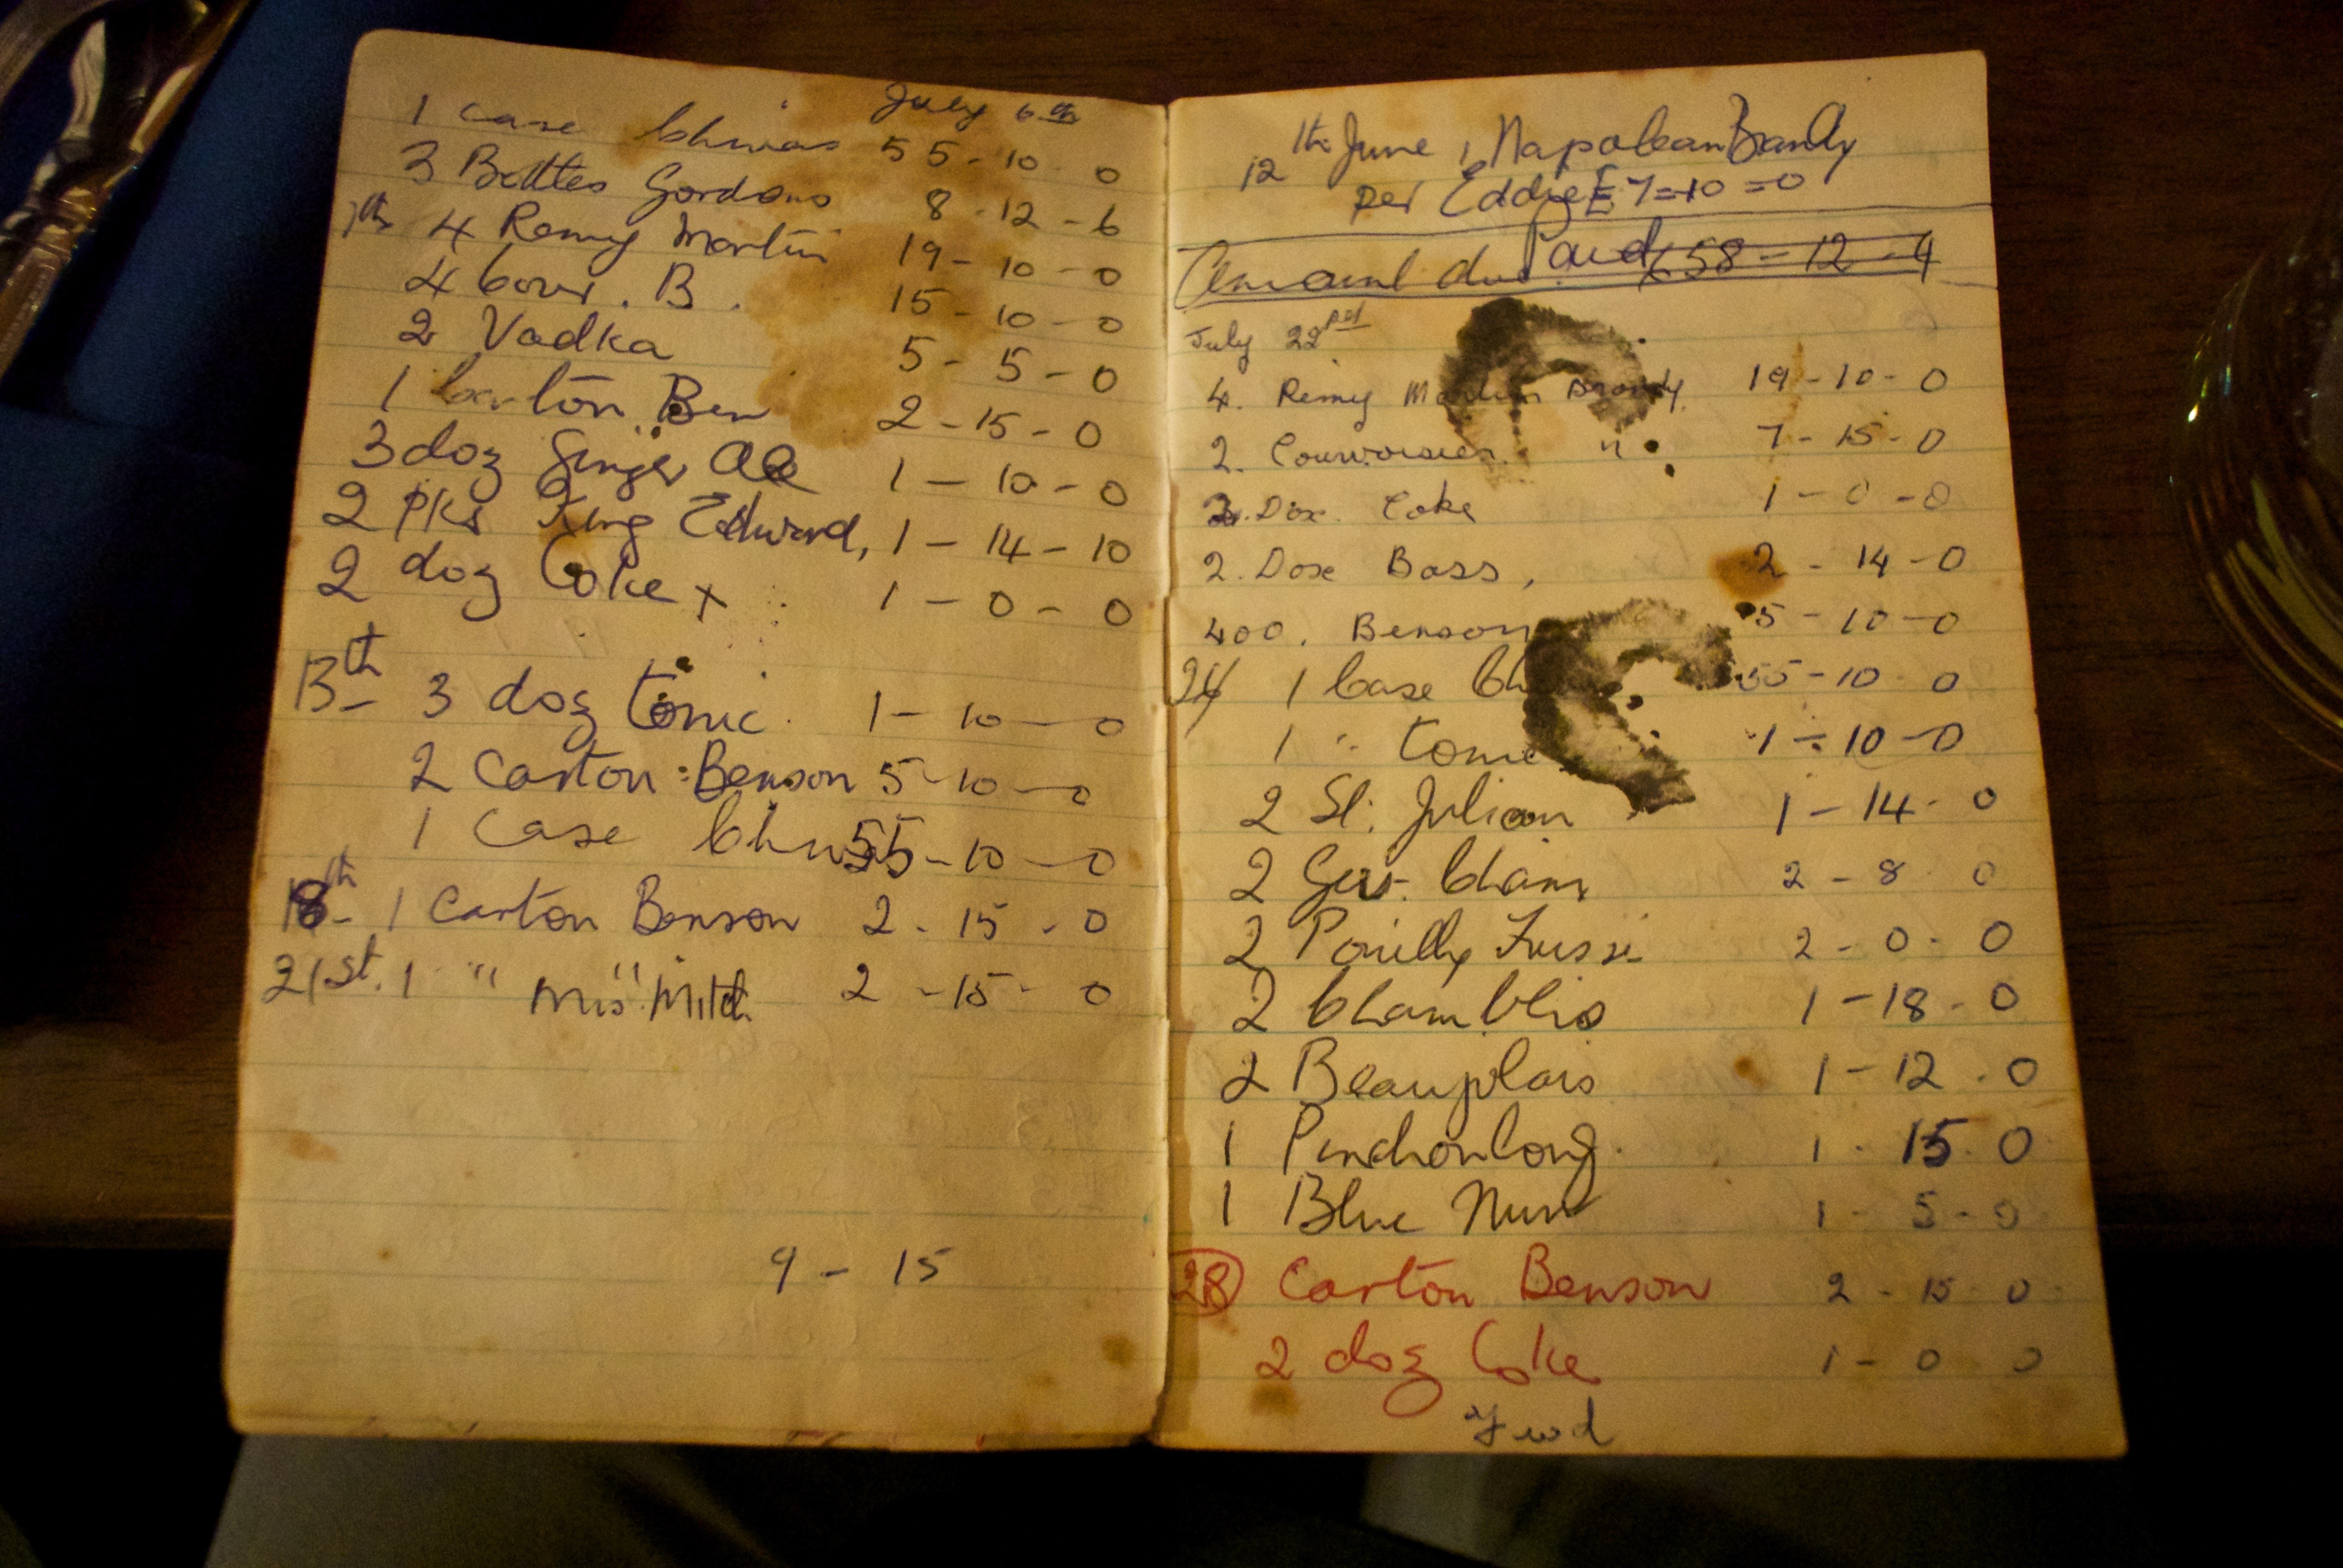 July 6th
1 case Chivas 55-10-0
3 Bottles Gordons 8-12-6
7th 4 Remy Martin 19-10-0
4 Cour. B. 15-10-0
2 Vodka 5-5-0
1 Carton Ben 2-15-0
3 doz Ginger Ale 1-10-0
2 pks King Edward, 1-14-10
2 doz Coke x 1-0-0
13th 3 doz Tonic 1-10-0
2 Carton Benson 5-10-0
1 Case Chivas 55-10-0
18th 1 Carton Benson 2-15-0
21st. 1 " " 2-15-0
9-15
12th June 1 Napolean Brandy
per Eddie £7=10=0
Amount due Paid £58-12-4
July 22nd
4. Remy Martin Brandy 19-10-0
2. Courvoisier " 7-15-0
2. Doz. Coke 1-0-0
2. Doze Bass, 2-14-0
400. Benson 5-10-0
1 Case Ch 55-10-0
1 " tonic 1-10-0
2 St. Julian 1-14-0
2 Gev. Cham 2-8-0
2 Pouilly Fussi 2-0-0
2 Cham Blis 1-18-0
2 Beauplais 1-12-0
1 Pinchonlong 1-15-0
1 Blue Nun 1-5-0
28 Carton Benson 2-15-0
2 doz Coke 1-0-0